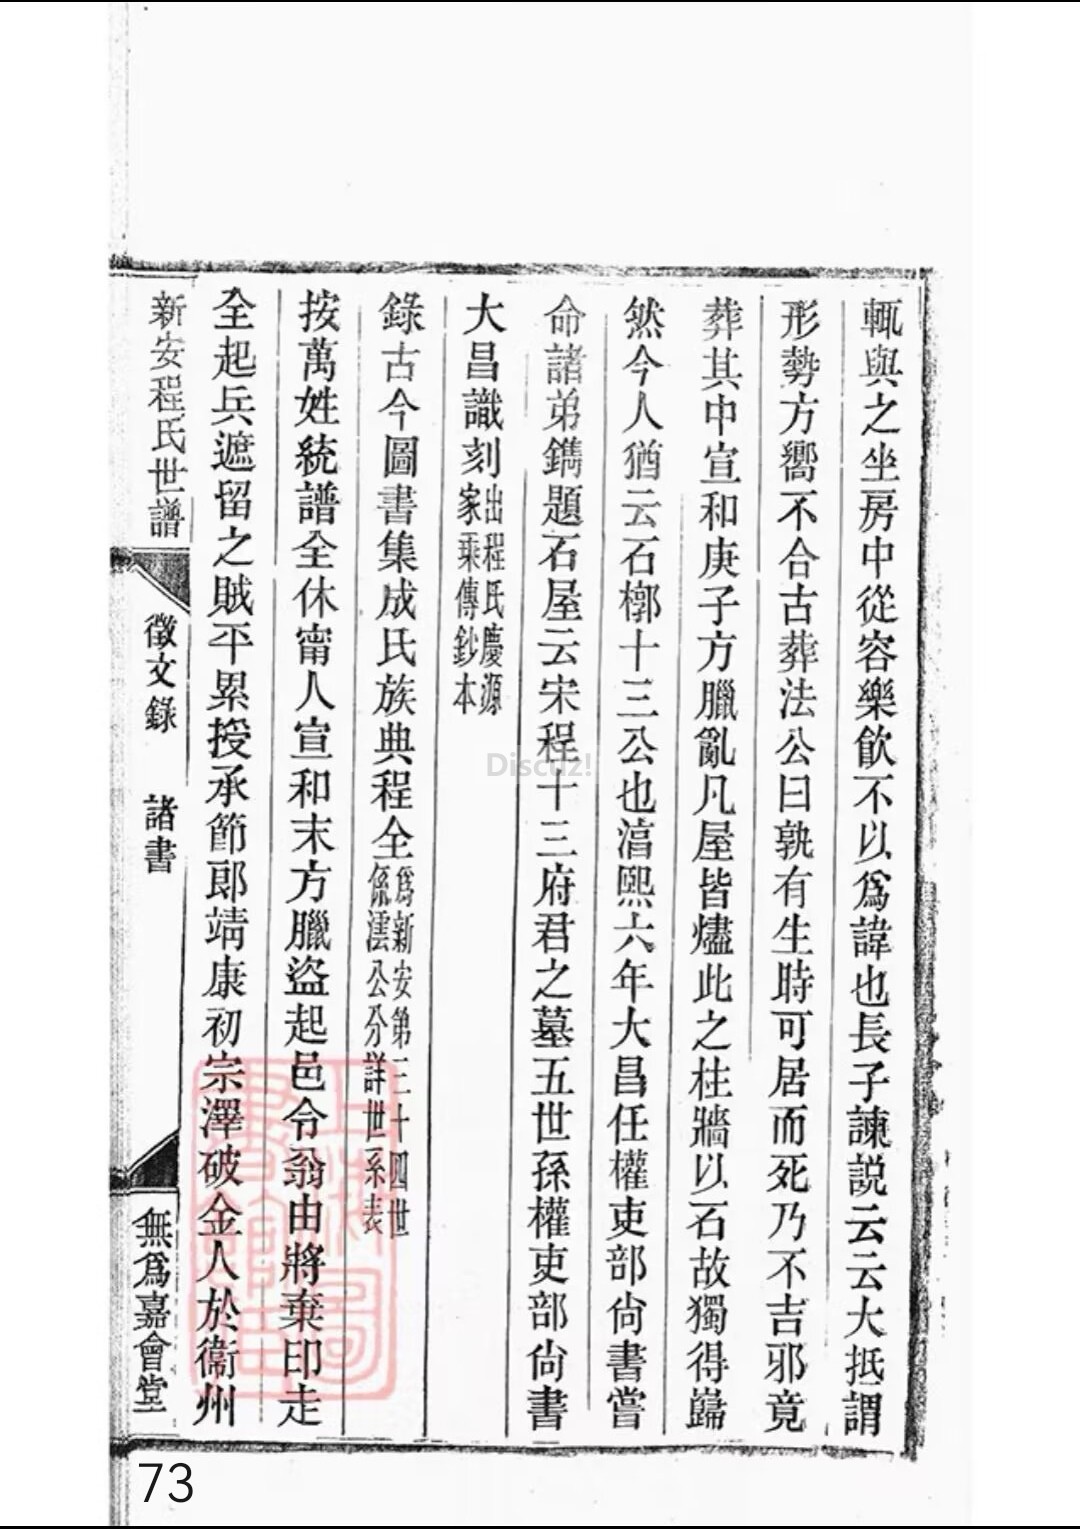 輒與之坐房中從容樂飲不以爲諱也長子諫説云云大抵謂
形勢方嚮不合古葬法公曰孰有生時可居而死乃不吉邪竟
葬其中宣和庚子方臘亂凡屋皆燼此之柱牆以石故獨得巋
然今人猶云石槨十三公也湻熙六年大昌任權吏部尙書嘗
命諸弟鐫題石屋云宋程十三府君之墓五世孫權吏部尙書
大昌識刻出程氏慶源家乘傳鈔本
錄古今圖書集成氏族典程全爲新安第三十四世係澐公分詳世系表
按萬姓統譜全休甯人宣和末方臘盜起邑令翁由將棄印走
全起兵遮留之賊平累授承節郎靖康初宗澤破金人於衞州
新安程氏世譜 徵文錄 諸書 無爲嘉會堂
Discuz!
73